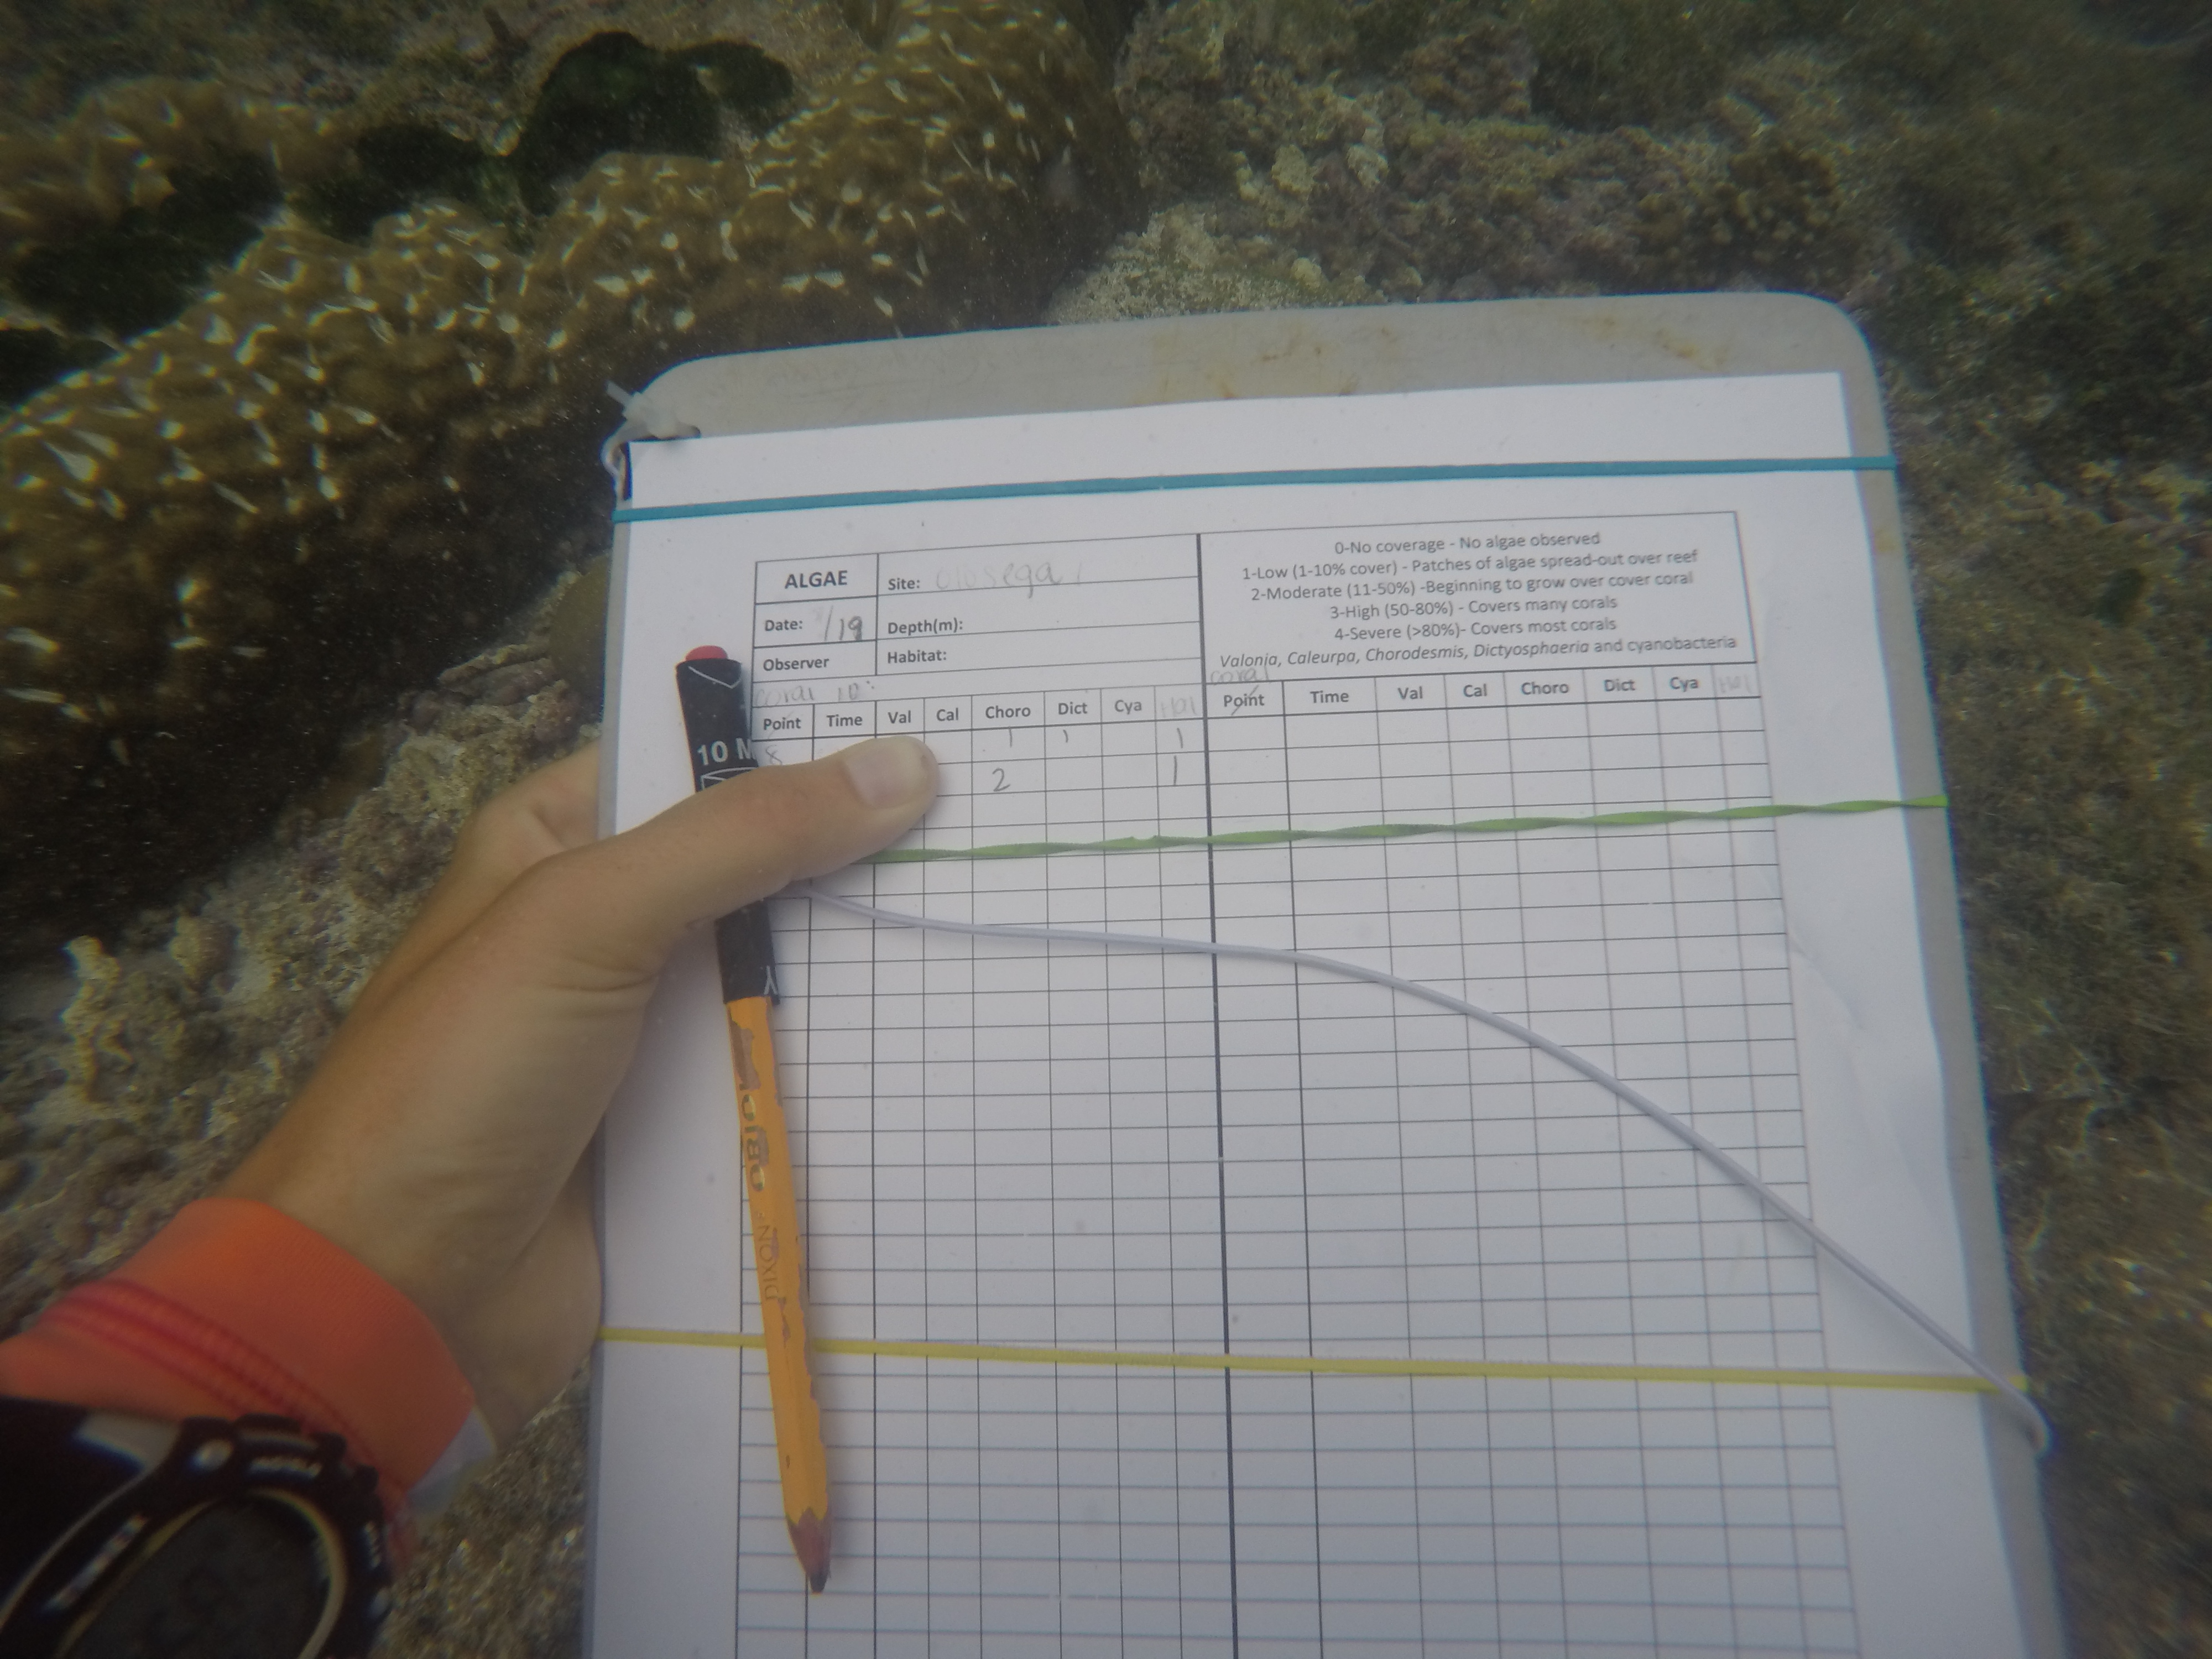 ALGAE
Site: Olosega
Date: /19
Depth(m):
Observer
Habitat:
0-No coverage - No algae observed
1-Low (1-10% cover) - Patches of algae spread-out over reef
2-Moderate (11-50%) -Beginning to grow over cover coral
3-High (50-80%) - Covers many corals
4-Severe (>80%)- Covers most corals
Valonia, Caleurpa, Chorodesmis, Dictyosphaeria and cyanobacteria
coral ID:
coral
Point Time Val Cal Choro Dict Cya Hal
Point Time Val Cal Choro Dict Cya Hal
8 1 1 1
2 1
10 M
DIXON